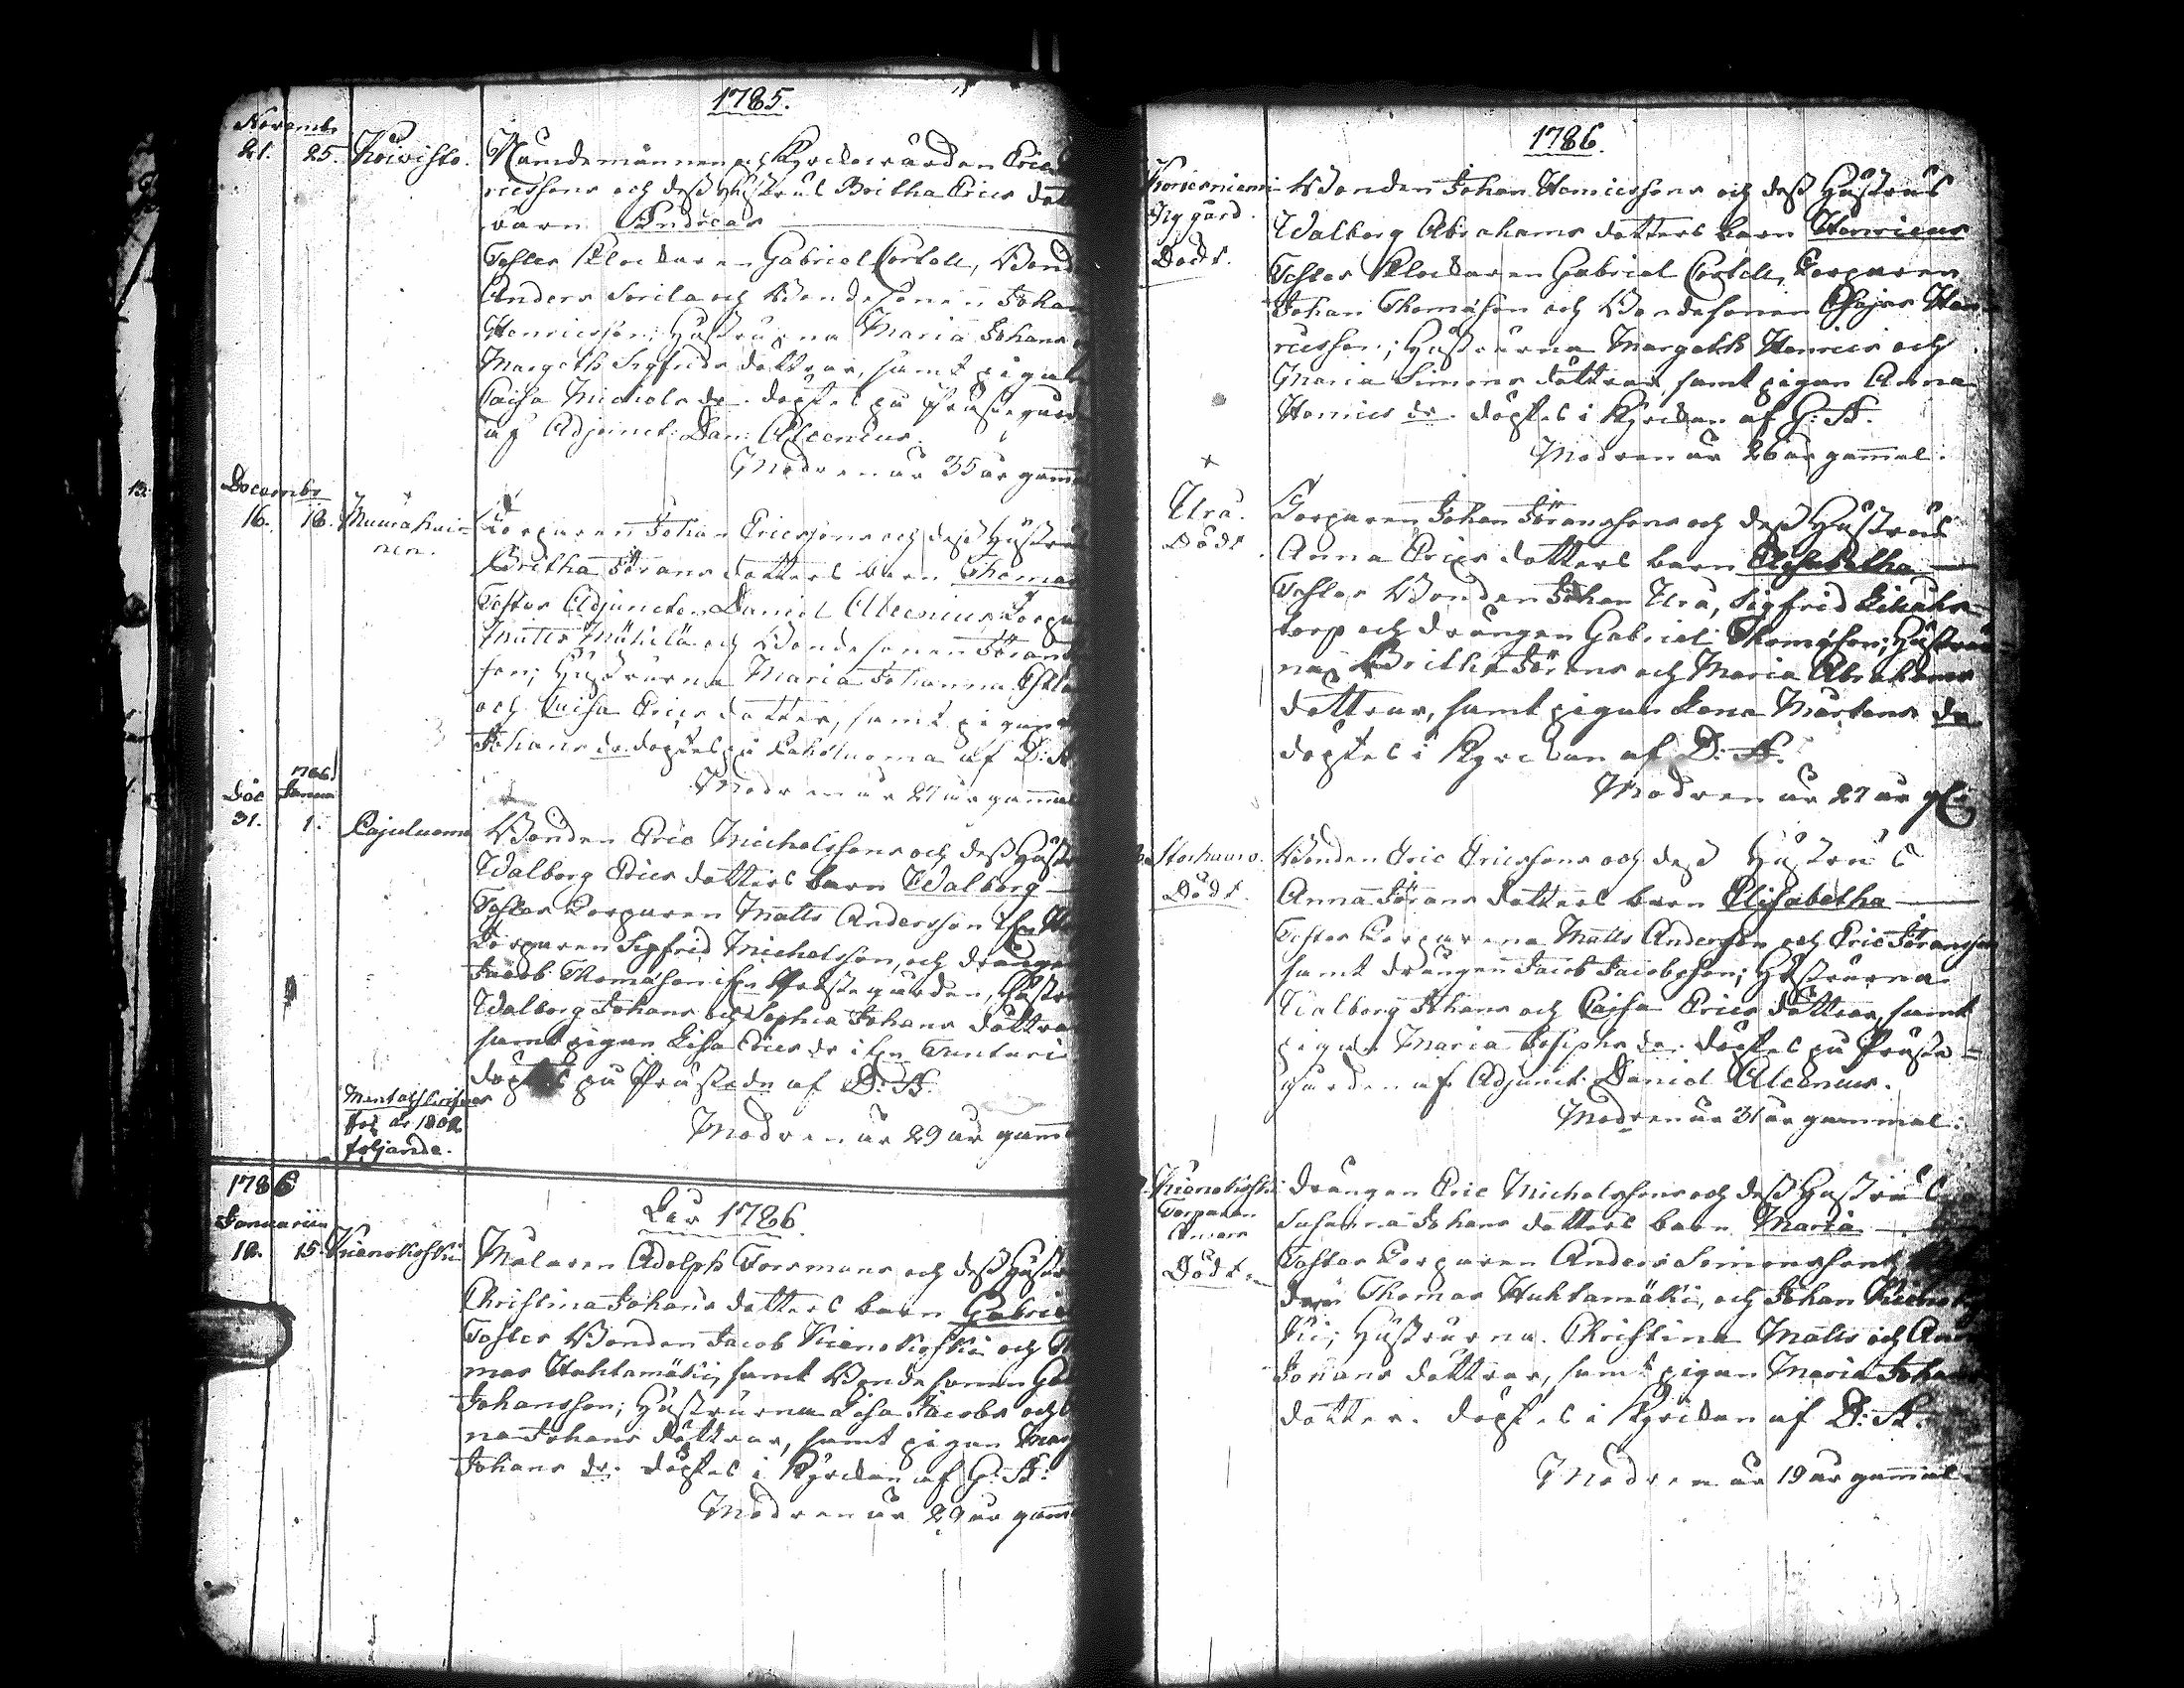 1785.
Novembr
21. 25. Koivisto. Nämdemannen och Kyrckiowärden Eric
ricssons och dess Hustrus Britha Erics dott
barn Andreas
Testes Klockaren Gabriel Cortell, Bond
Anders Sorila och Bondesonen Johan
Henricsson; Hustrurna Maria Johans
Margeth Sigfrids döttrar, samt pigan
Caisa Michels dr. döptes på Prästegård
af Adjunct: Dan: Alcenius.
Modren är 35 år gamm
Decembr
16. 18. Muurahai-
nen.
Torparen Johan Ericssons och dess Hustru
Britha Jörans dotters barn Thomas
Testes Adjuncten Daniel Alcenius Torpa
Matts Mäkilä och Bondesonen Jöran
son; Hustrurna Maria Johanna
och Caisa Erics dotter, samt pigan
Johans dr. döptes på Kakoluoma af D: A
Modren är 27 år gammal
1786
Dec Januar
31. 1. Cajuluoma Bonden Eric Michelssons och dess Hustr
Walborg Erics dotters barn Walborg
Testes Torparen Matts Andersson
Torparen Sigfrid Michelsson, och drängen
Jacob Thomasson ifrn Prästegården, Hustr
Walborg Johans och Sophia Johans döttrar
samt pigan Lisa Erics dr ifrn Tunturi
döptes på Prästegdn af D: A.
Modren är 29 år gamm
Mentalskrifves
för år 1802
följande.
1786
Januarius
År 1786.
12. 15. Kienokoski Målaren Adolph Forsmans och dess Hustr
Christina Johans dotters barn Gabrie
Testes Bonden Jacob Kienokoski och
mas Huhtamäki, samt Bondesonen
Johansson; Hustrurna Lisa Jacobs och
na Johans döttrar, samt pigan Mar
Johans dr. döptes i Kyrckan af G: A:
Modren är 29 år gamm
1786.
Koriesniemi
Nygård.
Dödt.
Bonden Johan Henricssons och dess Hustrus
Walborg Abrahams dotters barn Henricus
Testes Klockaren Gabriel Cortell, Torparen
Johan Thomasson och Bondesonen Esaias Hen
ricsson; Hustrurna Margeth Henrics och
Maria Simons döttrar, samt pigan Anna
Henrics dr. döptes i Kyrckan af G: A.
Modren är 26 år gammal.
Ura.
Dödt.
Torparen Johan Jöranssons och dess Hustrus
Anna Erics dotters barn Elisabetha
Testes Bonden Johan Ura, Sigfrid
torp och drängen Gabriel Thomasson; Hustrur
na Britha Jörans och Maria Abrahams
döttrar, samt pigan Lena Mårtens dr
döptes i Kyrckan af D: A.
Modren är 27 år gl:
Storhauro.
Dödt.
Bonden Eric Ericssons och dess Hustrus
Anna Jörans dotters barn Elisabetha
Testes Torparena Matts Andersson och Eric Jöransson
samt drängen Jacob Jacobsson; Hustrurna
Walborg Johans och Caisa Erics döttrar, samt
pigan Maria Josephs dr. döptes på Präste-
gården af Adjunct: Daniel Alcenius.
Modren är 31 år gammal.
Kienokoski
Torparen
Anders
Dödt.
Drängen Eric Michelssons och dess Hustrus
Susanna Johans dotters barn Maria
Testes Torparen Anders Simonsson
Thomas Huhtamäki, och Johan Kienokos
ki; Hustrurna Christina Matts och An
Johans döttrar, samt pigan Maria Johans
dotter. döptes i Kyrckan af D: A.
Modren är 19 år gammal.